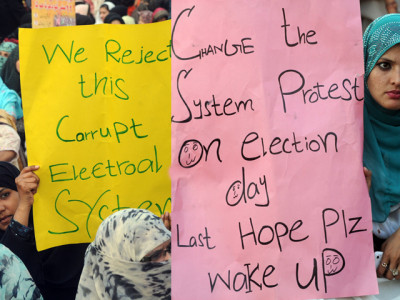 We Reject
this
Corrupt
Electroal
System
CHANGE the
System Protest
on election
day
Last Hope Plz
wake UP